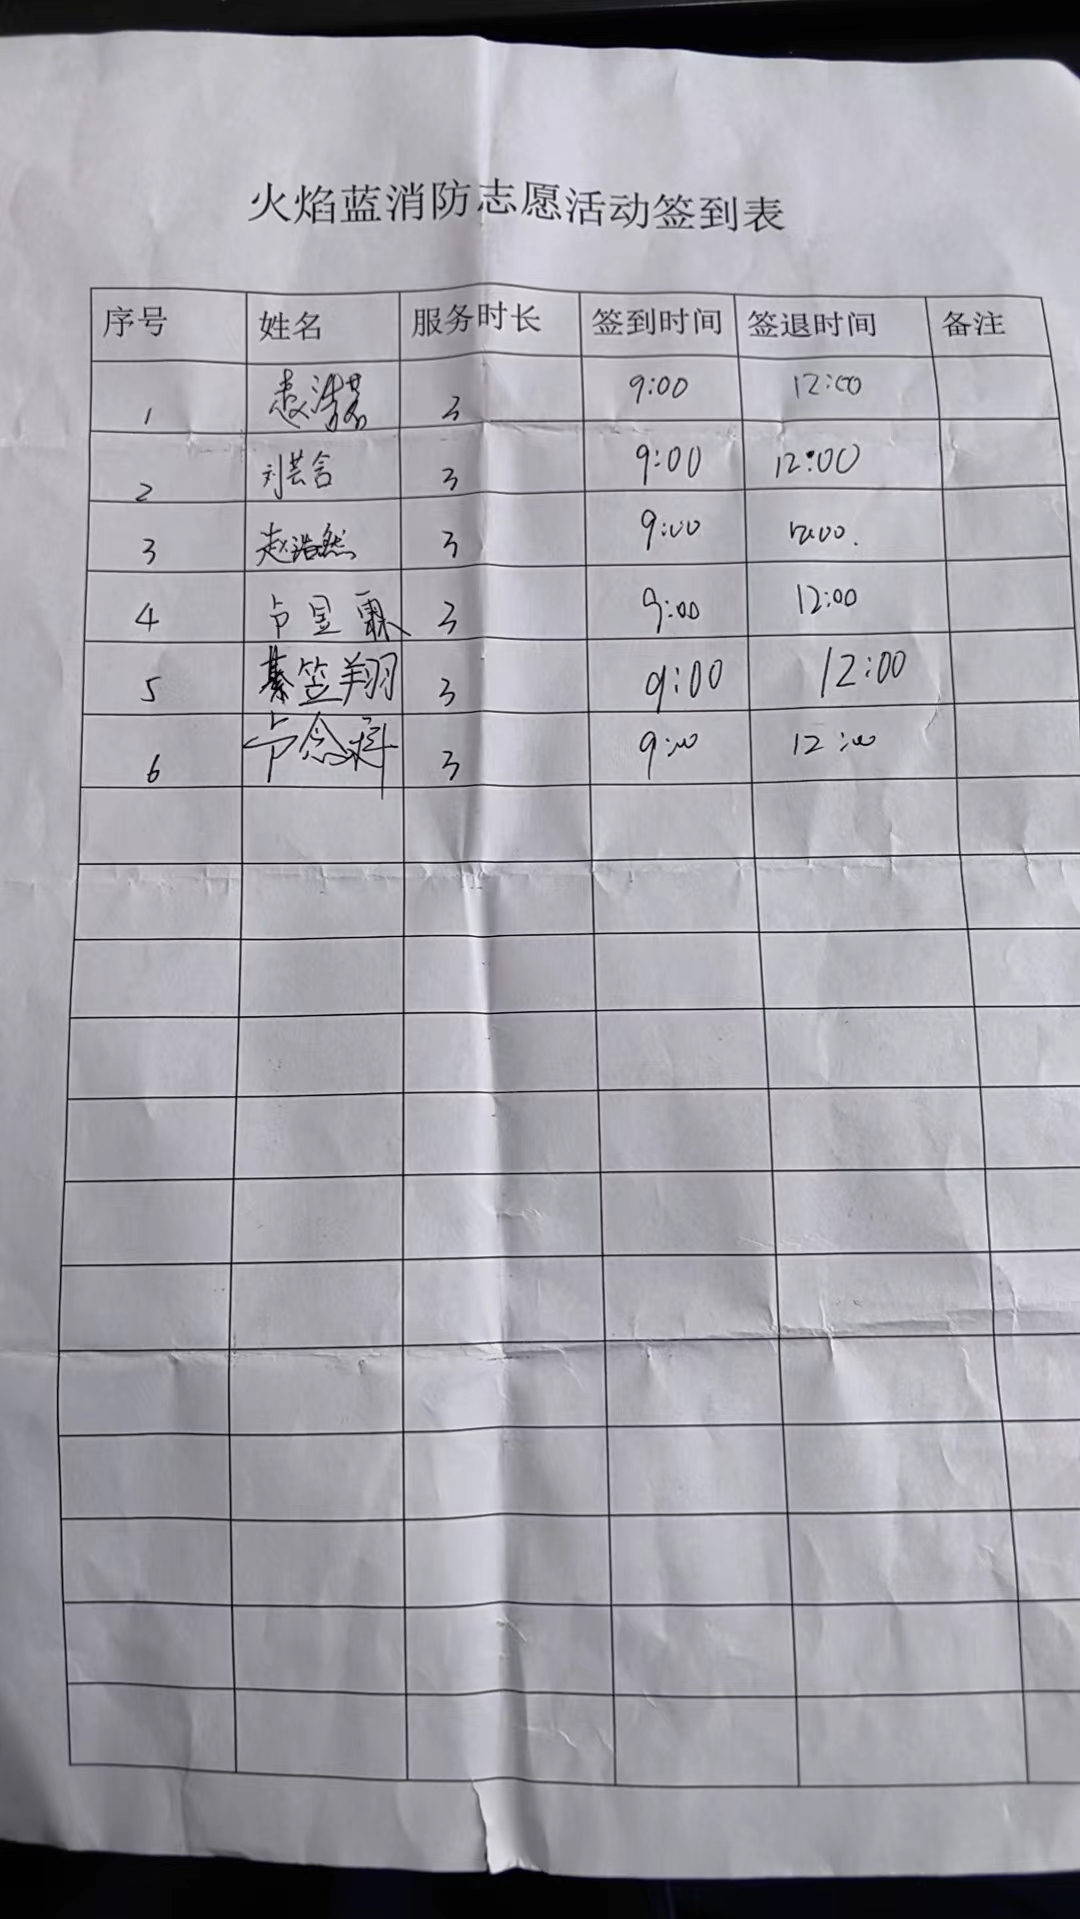 火焰蓝消防志愿活动签到表
序号 姓名 服务时长 签到时间 签退时间 备注
1 3 9:00 12:00
2 刘芸含 3 9:00 12:00
3 赵浩然 3 9:00 12:00.
4 卢昱霖 3 9:00 12:00
5 綦笠翔 3 9:00 12:00
6 卢念 3 9:00 12:00